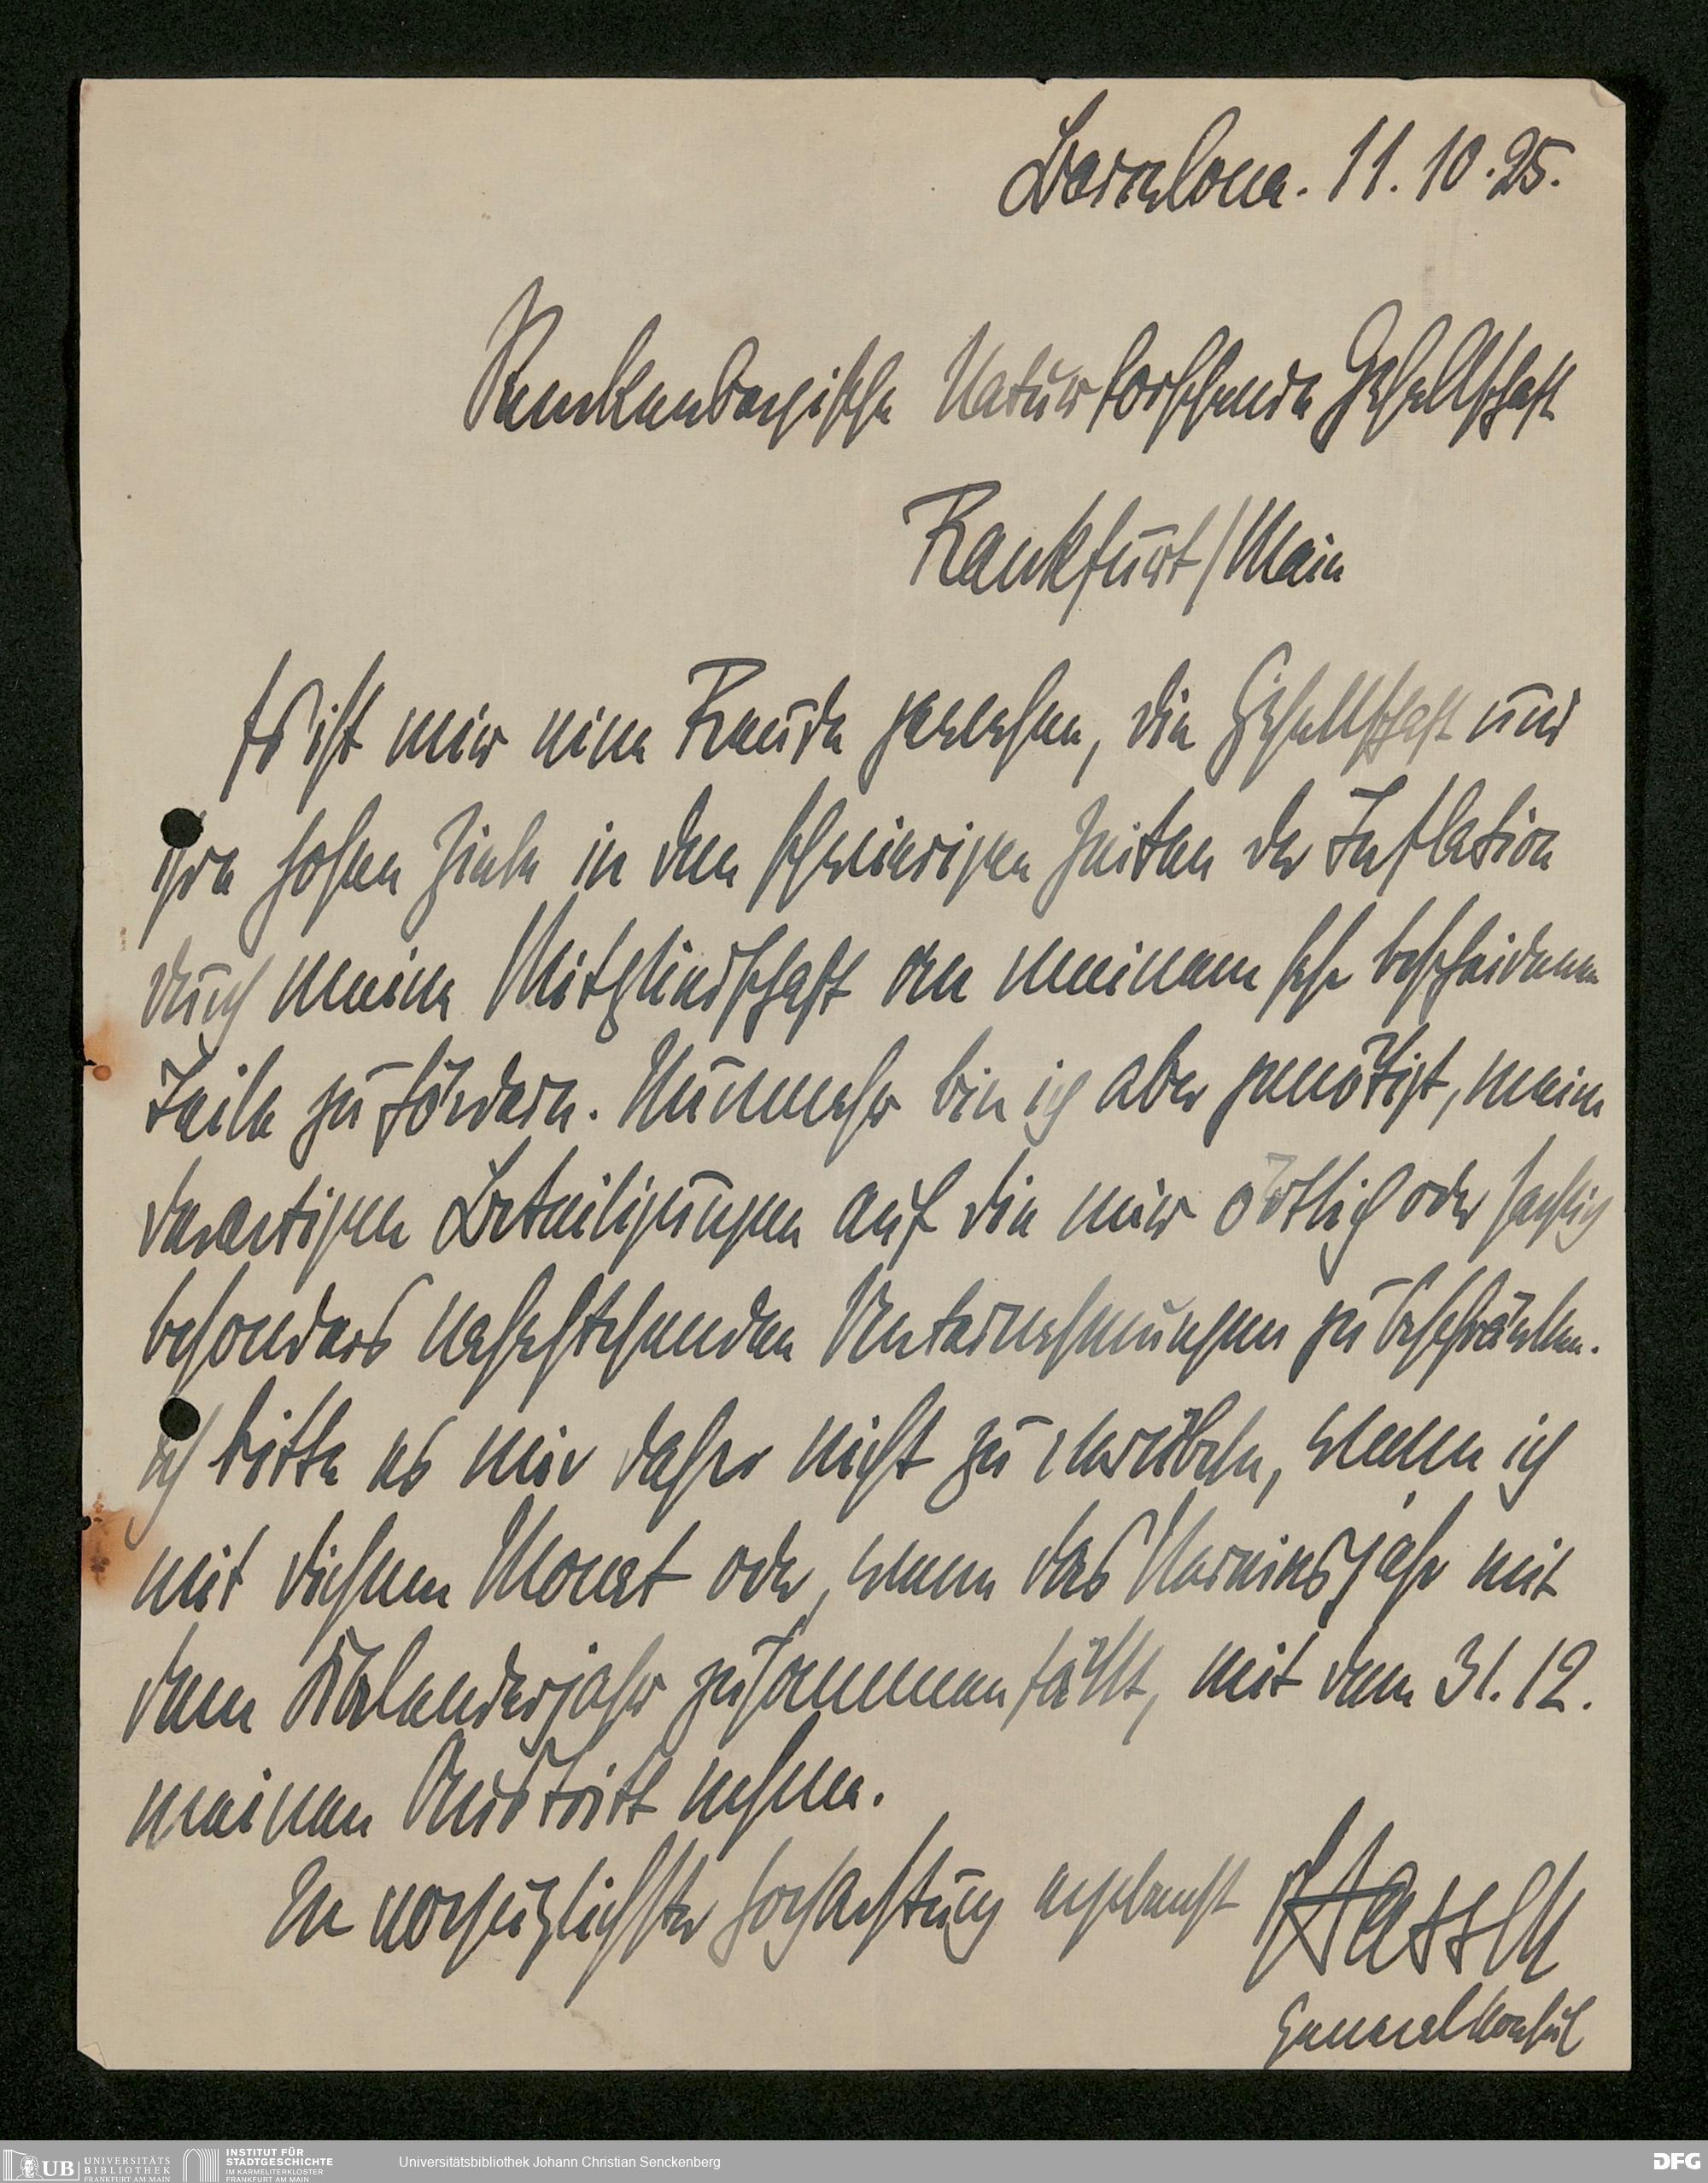 Barcelona. 11. 10. 25.
Senckenbergische Naturforschende Gesellschaft
Frankfurt/Main
Es ist mir eine Freude gewesen, die Gesellschaft und
ihre hohen Ziele in den schwierigen Zeiten der Inflation
durch meine Mitgliedschaft an meinem sehr bescheidenen
Teile zu fördern. Nunmehr bin ich aber genötigt, meine
derartigen Beteiligungen auf die mir örtlich oder sachlich
besonders nahestehenden Unternehmungen zu beschränken.
Ich bitte es mir daher nicht zu verübeln, wenn ich
mit diesem Monat oder, wenn das Vereinsjahr mit
dem Kalenderjahr zusammenfällt, mit dem 31. 12.
meinen Austritt nehme.
In vorzüglichster Hochachtung ergebenst Hassell
Generalkonsul
UB UNIVERSITÄTS
BIBLIOTHEK
FRANKFURT AM MAIN
INSTITUT FÜR
STADTGESCHICHTE
IM KARMELITERKLOSTER
FRANKFURT AM MAIN
Universitätsbibliothek Johann Christian Senckenberg
DFG